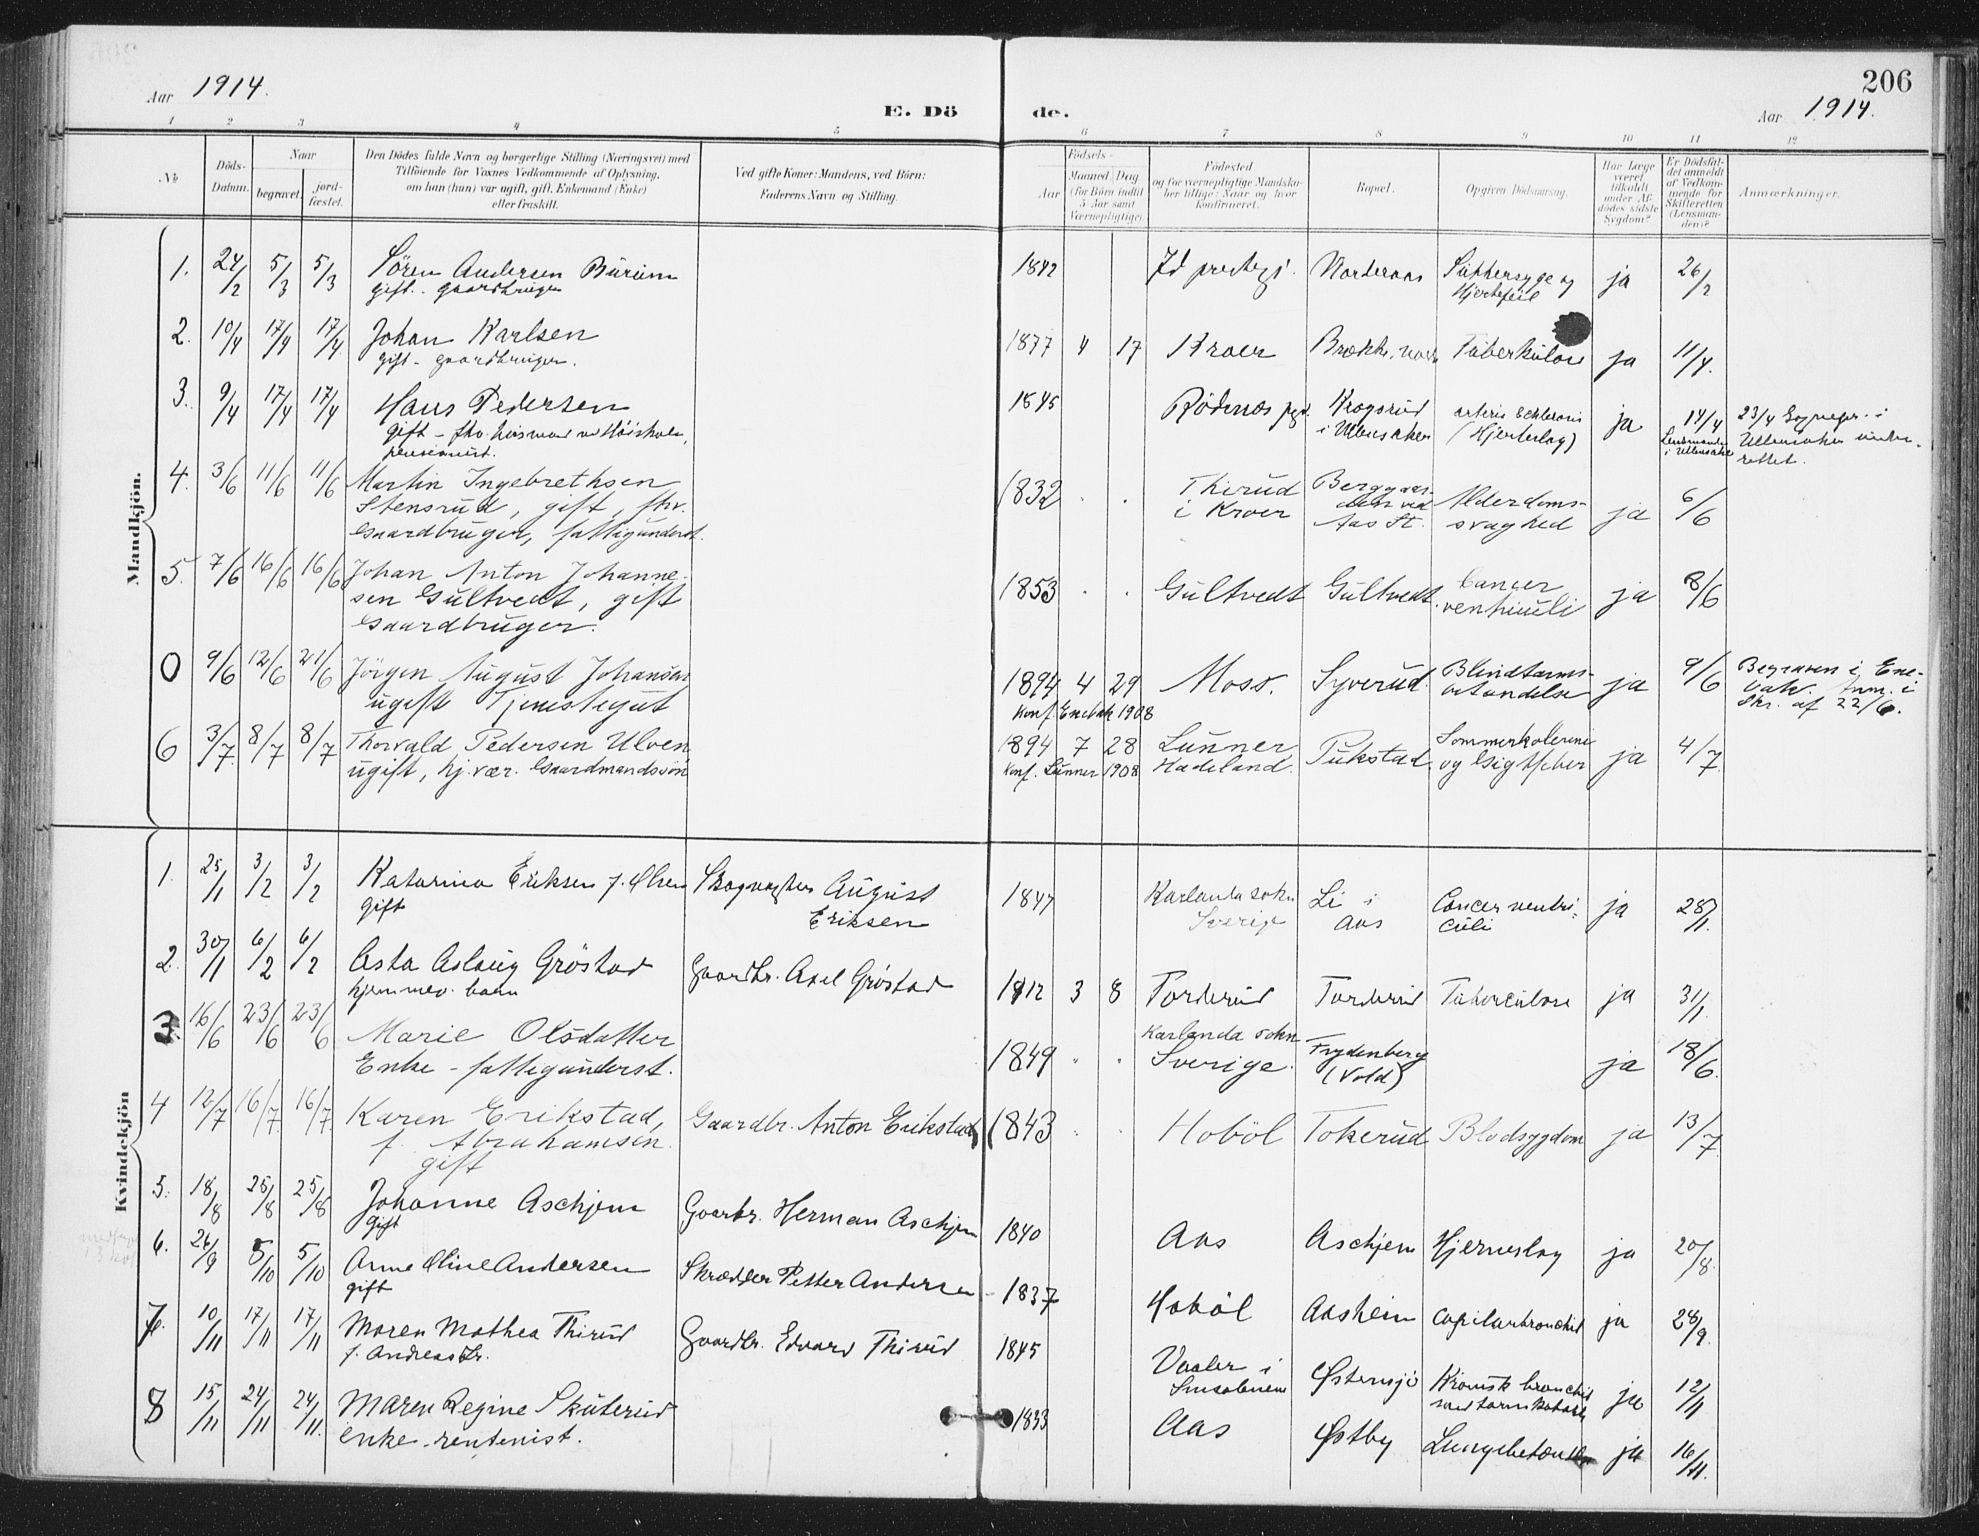 206
Aar 1914.
E. Döde.
Aar 1914.
1 2 3 4 5 6 7 8 9 10 11 12
No. Döds-Datum. Naar begravet. jord-fæstet.
Den Dödes fulde Navn og borgerlige Stilling (Næringsvei) med
Tilföiende for Voxnes Vedkommende af Oplysning,
om han (hun) var ugift, gift, Enkemand (Enke)
eller fraskilt.
Ved gifte Koner: Mandens, ved Börn:
Faderens Navn og Stilling.
Födsels- Aar Maaned. Dag (for Börn indtil 5 Aar samt Værnepligtige).
Födested
og for værnepligtige Mandska-
ber tillige: Naar og hvor
konfirmeret.
Bopæl.
Opgiven Dödsaarsag.
Har Læge været tilkaldt under Af-dödes sidste Sygdom?
Er Dödsfal-det anmeldt af Vedkom-mende for Skifteretten (Lensman-den)?
Anmærkninger.
Mandkjön.
1. 24/2 5/3 5/3 Sören Andersen Burum 1842 Id prestegj. Norderaas Sukkersyge og ja 26/2
gift. gaardbruger Hjertefeil
2. 10/4 17/4 17/4 Johan Karlsen 1877 4 17 Kroer Tuberkulose ja 11/4.
gift - gaardbruger.
3. 9/4 17/4 17/4 Hans Pedersen 1845 Rödenæs pgd. Krogsrud ja 14/4 23/4 Sognepr. i
gift - fhv. husmand ved Höiskolen, i Ullensaker (Hjerteslag) Lensmanden Ullensaker under-
pensionist. i Ullensaker rettet.
4. 3/6 11/6 11/6 Martin Ingebrethsen 1832 Thirud
Stensrud, gift, fhv. i Kroer Aas St. Alderdoms- ja 6/6
Gaardbruger, fattigunderst. svaghed
5. 7/6 16/6 16/6 Johan Anton Johanne- 1853 Gultvedt Gultvedt. Cancer ja 8/6
sen Gultvedt, gift ventriculi
Gaardbruger.
0 9/6 12/6 21/6 Jörgen August Johansen 1894 4 29 Moss. Syverud. Blindtarms- ja 9/6 Begraven i Ene-
ugift Tjenestegut Konf. Enebak 1908 betændelse bak. Anm. i
Skr. af 22/6.
6 3/7. 8/7 8/7 Thorvald Pedersen Ulven 1894 7 28 Lunner Pukstad. ja 4/7.
ugift, hj.vær. Gaardmandssön Konf. Lunner 1908 Hadeland. og Gigtfeber
Kvindekjön
1. 25/1 3/2 3/2 Katarina Eriksen f. Olsen Skogvogter August 1847 Karlanda sokn Li i Cancer ventri- ja 28/1.
gift Eriksen Sverige Aas culi
2. 30/1 6/2 6/2 Asta Aslaug Gröstad Gaardbr. Axel Gröstad 1912 3 8 Torderud Torderud Tuberculose ja 31/1
hjemmev. barn
3. 16/6 23/6 23/6 Marie Olsdatter 1849 Karlanda sokn Frydenberg ja 18/6.
Enke - fattigunderst. Sverige. (Vold)
4 12/7 16/7 16/7 Karen Erikstad, Gaardbr. Anton Erikstad 1843 Hoböl Tokerud Blodsygdom ja 13/7.
f. Abrahamsen.
gift
5. 18/8 25/8 25/8 Johanne Aschjem Gaarbr. Herman Aschjem 1840 Aas Aschjem Hjerneslag ja 20/8.
gift
6. 26/9 5/10 5/10 Anne Oline Andersen Skrædder Petter Andersen 1837 Hoböl Aasheim Capilarbronchit ja 28/9.
gift
7. 10/11 17/11 17/11 Maren Mathea Thirud Gaardbr. Edvard Thirud 1845 Vaaler i Østensjö Kronisk bronchit ja 12/11
f. Andreasdtr. Smaalenene med tarmkatarr
8 15/11 24/11 24/11. Maren Regine Skuterud 1833 Aas Østby Lungebetændelse ja 16/11.
enke. rentenist.